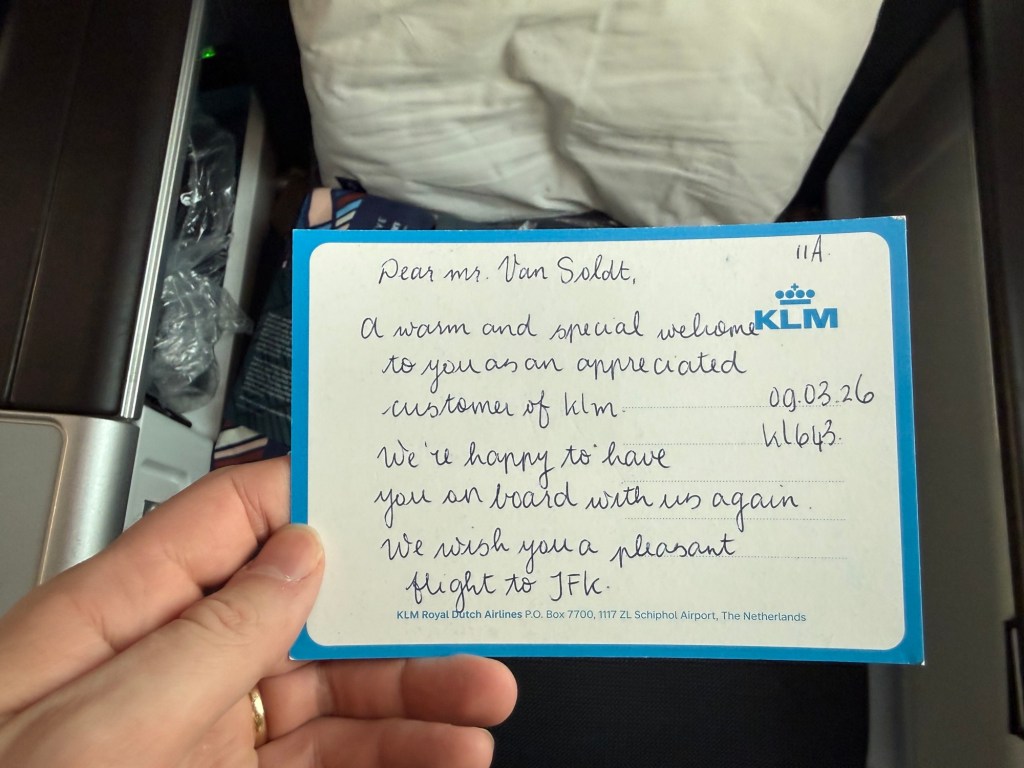 11A.
Dear mr. Van Soldt,
KLM
A warm and special welcome
to you as an appreciated
customer of klm.
09.03.26
kl643.
We're happy to have
you on board with us again.
We wish you a pleasant
flight to JFK.
KLM Royal Dutch Airlines P.O. Box 7700, 1117 ZL Schiphol Airport, The Netherlands